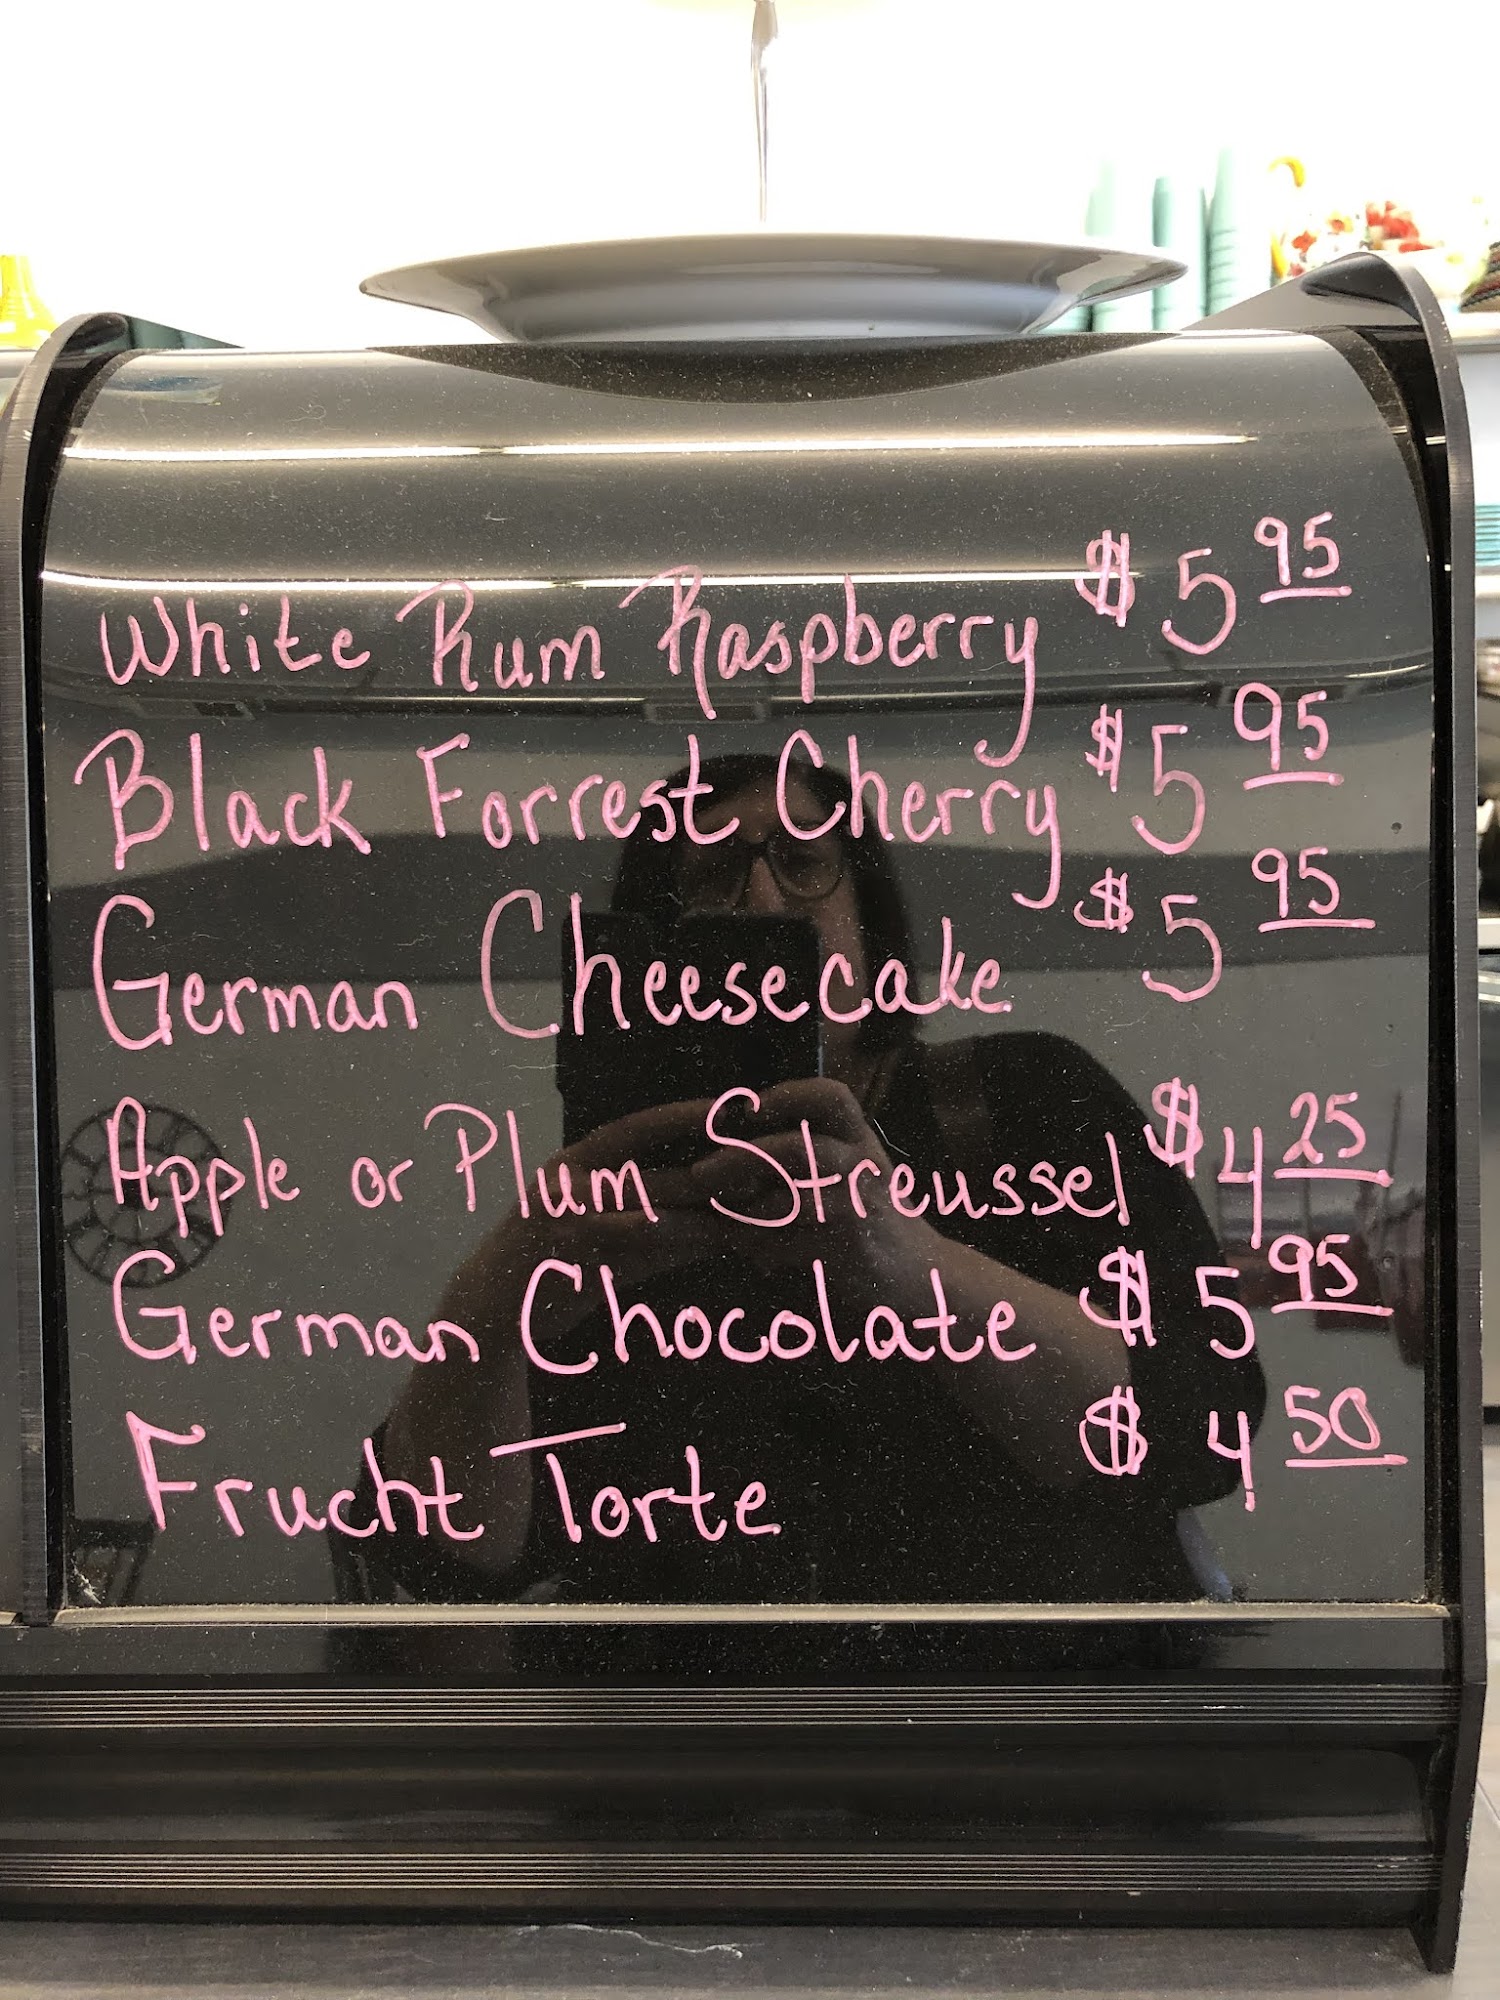 White Rum Raspberry $5 95
Black Forrest Cherry $5 95
German Cheesecake $5 95
Apple or Plum Streussel $4 25
German Chocolate $5 95
Frucht Torte $4 50